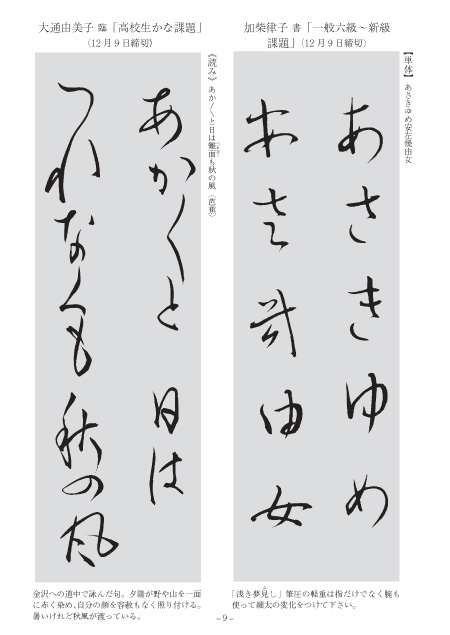 加柴律子 書「一般六級～新級
課題」(12月9日締切)
【単体】 あさきゆめ安左幾由女
あさきゆめ
安左幾由女
「浅き夢見し」筆圧の軽重は指だけでなく腕も
使って細太の変化をつけて下さい。
大通由美子 臨「高校生かな課題」
(12月9日締切)
《読み》 あか〱と日は難面も秋の風 (芭蕉)
あか〱と 日は
つれなくも 秋の風
金沢への道中で詠んだ句。夕陽が野や山を一面
に赤く染め、自分の顔を容赦もなく照り付ける。
暑いけれど秋風が渡っている。
- 9 -